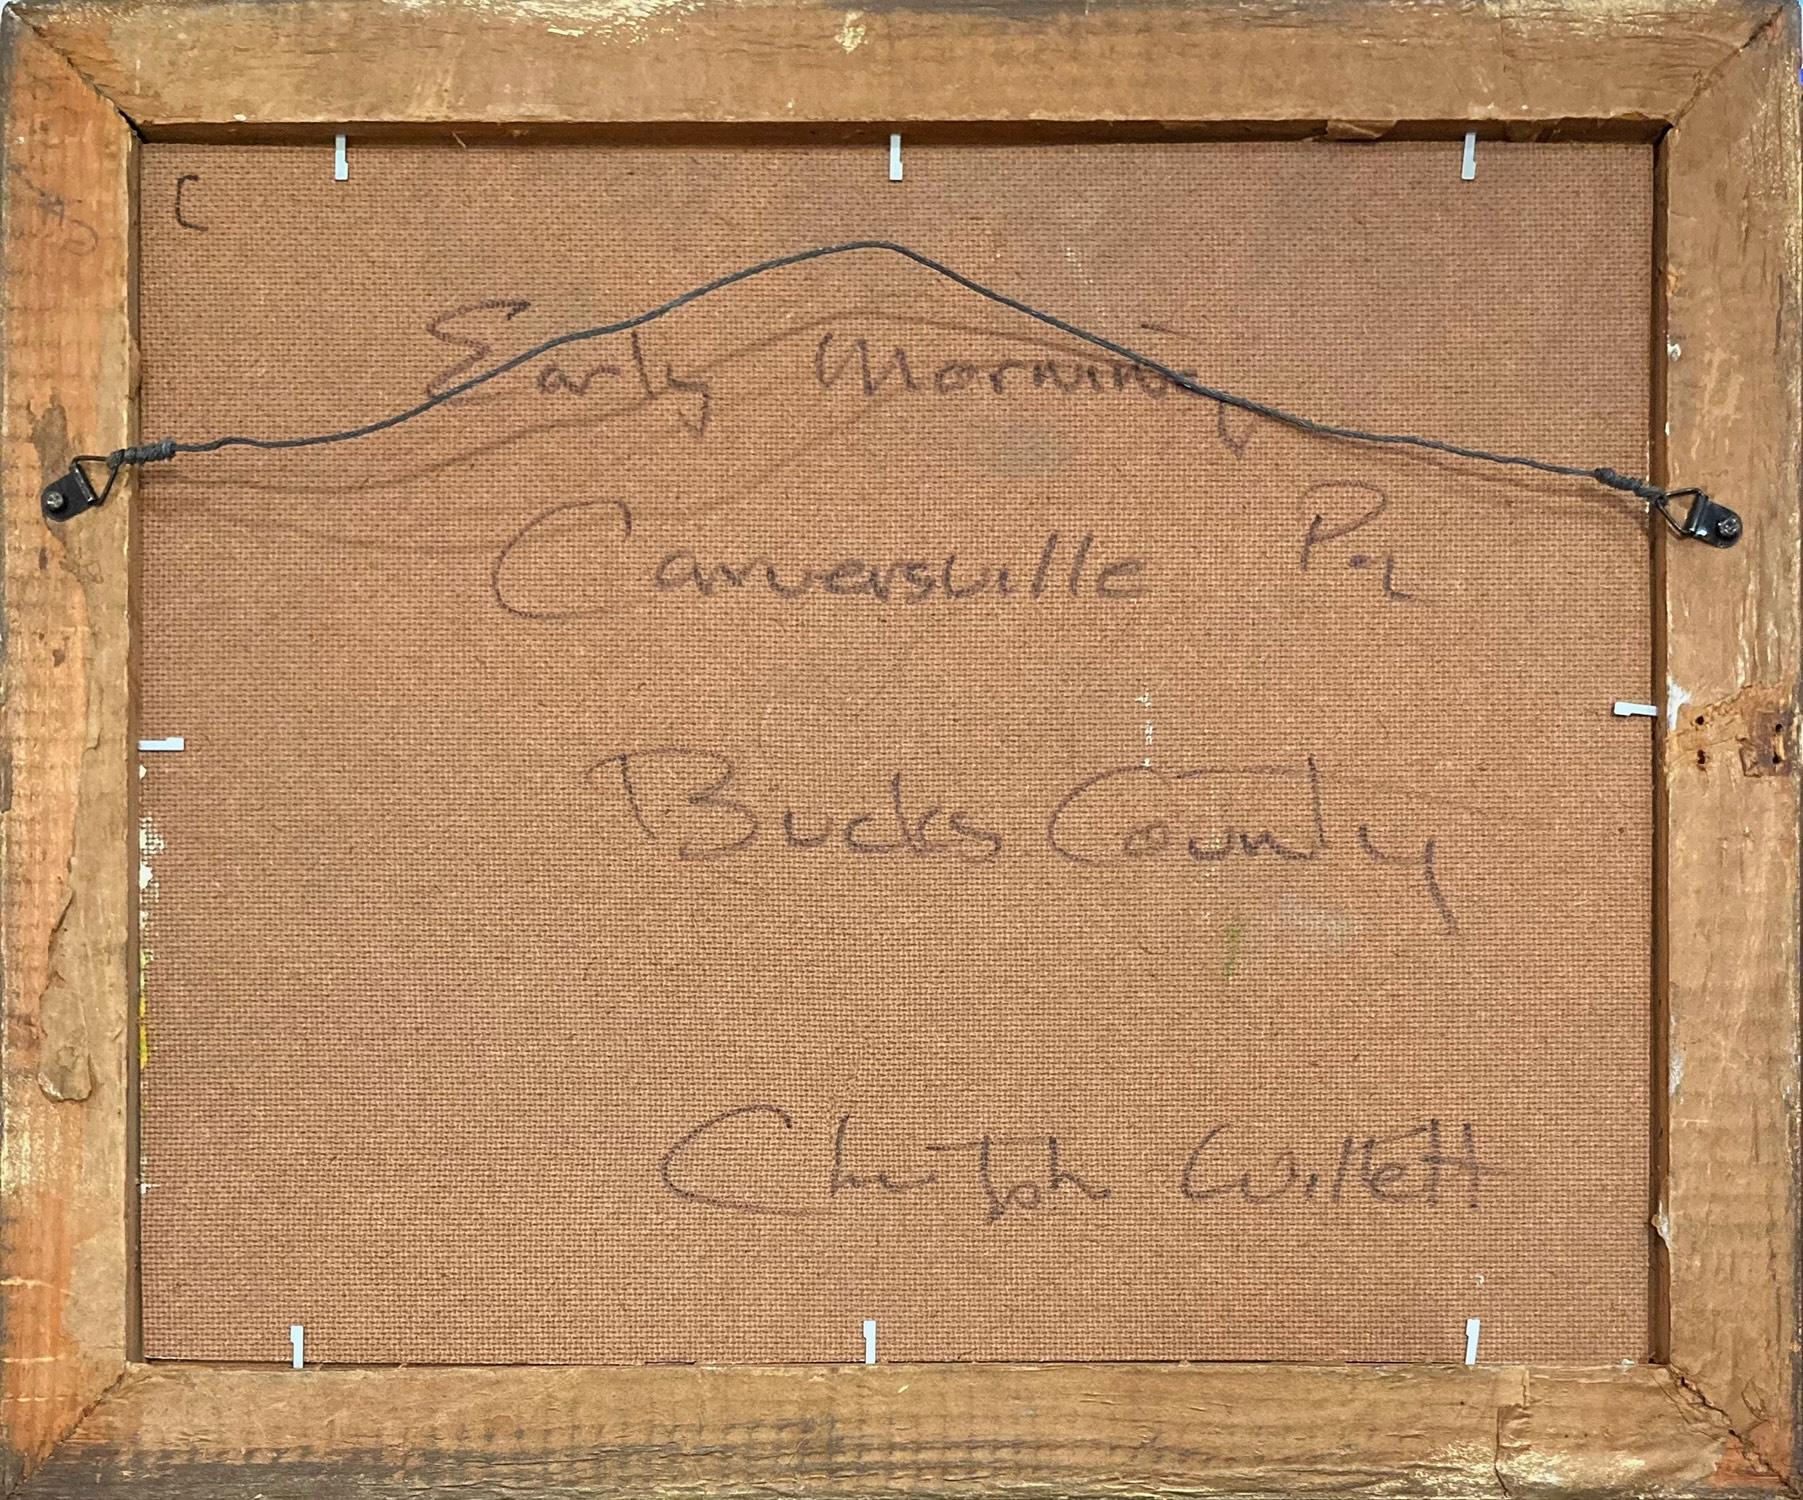 C
Early Morning
Carversville Pa
Bucks County
Christoph Willett